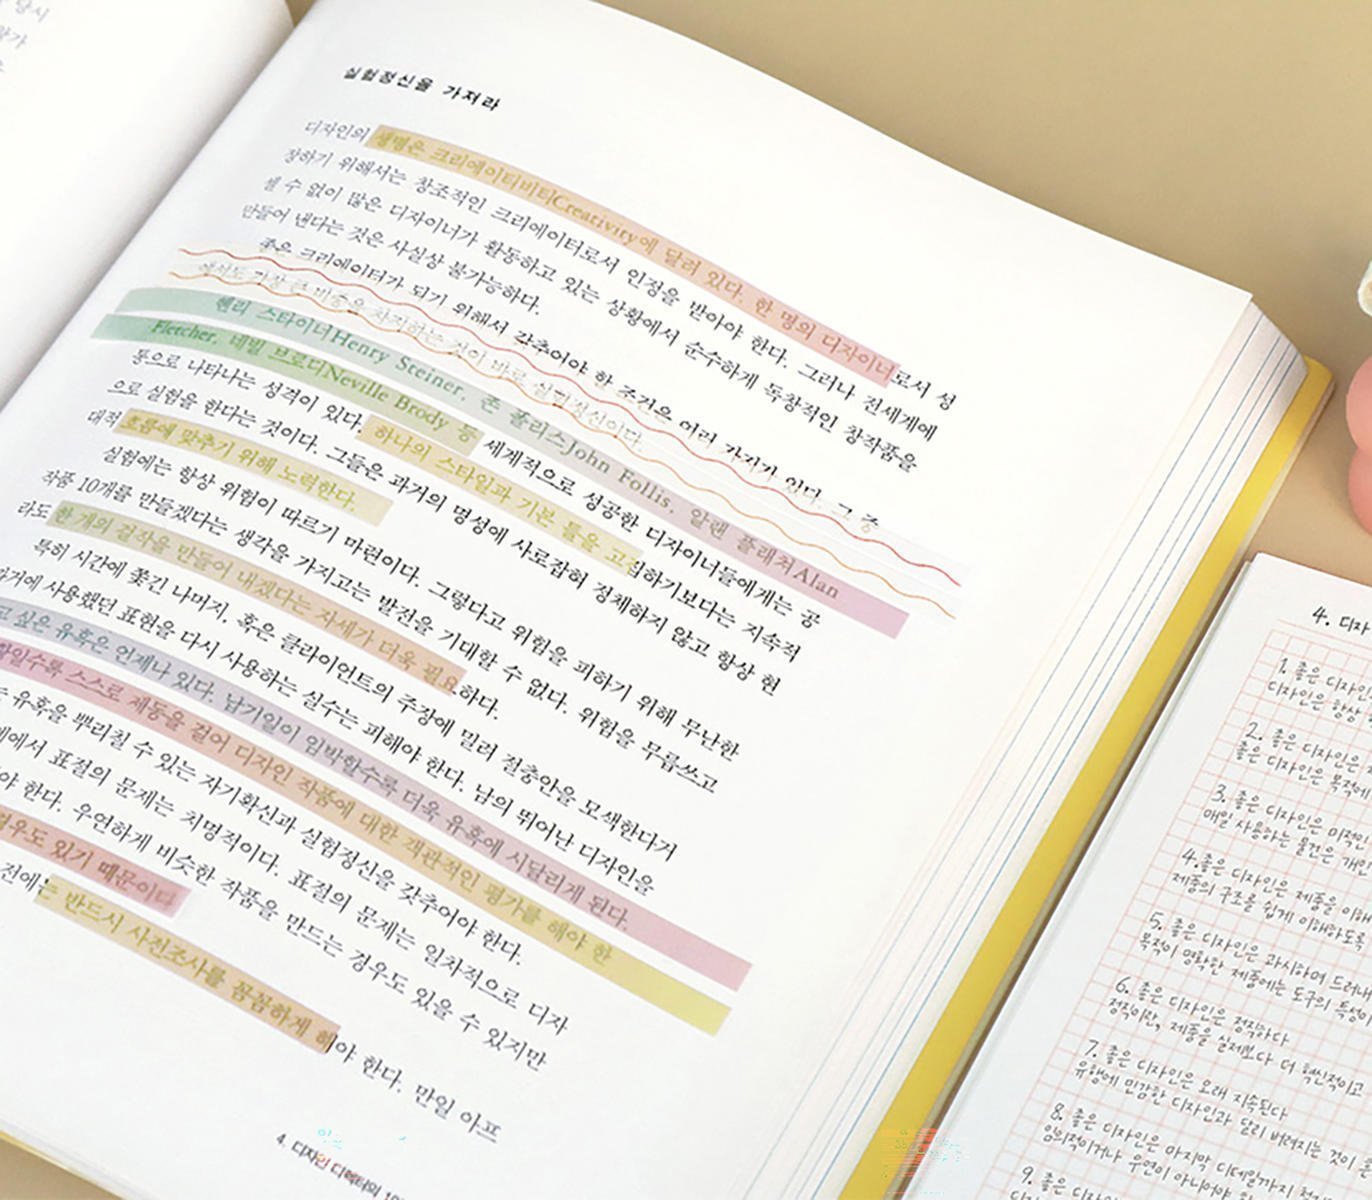 당시
실험정신을 가져라
디자인의 생명은 크리에이티비티Creativity에 달려 있다. 한 명의 디자이너로서 성
장하기 위해서는 창조적인 크리에이터로서 인정을 받아야 한다. 그러나 전세계에
셀 수 없이 많은 디자이너가 활동하고 있는 상황에서 순수하게 독창적인 창작품을
만들어 낸다는 것은 사실상 불가능하다.
좋은 크리에이터가 되기 위해서 갖추어야 할 조건은 여러 가지가 있다. 그 중
에서도 가장 큰 비중을 차지하는 것이 바로 실험정신이다.
헨리 스타이너Henry Steiner, 존 폴리스John Follis, 알랜 플래쳐Alan
Fletcher, 네빌 브로디Neville Brody 등 세계적으로 성공한 디자이너들에게는 공
통으로 나타나는 성격이 있다. 하나의 스타일과 기본 틀을 고집하기보다는 지속적
으로 실험을 한다는 것이다. 그들은 과거의 명성에 사로잡혀 정체하지 않고 항상 현
대적 흐름에 맞추기 위해 노력한다.
실험에는 항상 위험이 따르기 마련이다. 그렇다고 위험을 피하기 위해 무난한
작품 10개를 만들겠다는 생각을 가지고는 발전을 기대할 수 없다. 위험을 무릅쓰고
라도 한 개의 걸작을 만들어 내겠다는 자세가 더욱 필요하다.
특히 시간에 쫓긴 나머지, 혹은 클라이언트의 주장에 밀려 절충안을 모색한다거
과거에 사용했던 표현을 다시 사용하는 실수는 피해야 한다. 남의 뛰어난 디자인을
고 싶은 유혹은 언제나 있다. 납기일이 임박할수록 더욱 유혹에 시달리게 된다.
할일수록 스스로 제동을 걸어 디자인 작품에 대한 객관적인 평가를 해야 한
유혹을 뿌리칠 수 있는 자기확신과 실험정신을 갖추어야 한다.
에서 표절의 문제는 치명적이다. 표절의 문제는 일차적으로 디자
야 한다. 우연하게 비슷한 작품을 만드는 경우도 있을 수 있지만
경우도 있기 때문이다
전에는 반드시 사전조사를 꼼꼼하게 해야 한다. 만일 아프
4. 디자인 디렉터의
4. 디자
1. 좋은 디자인
디자인은 항상
2. 좋은 디자인은
좋은 디자인은 목적에
3. 좋은 디자인은 미적인
매일 사용하는 물건은 개인
4. 좋은 디자인은 제품을 이해
제품의 구조를 쉽게 이해하도록
5. 좋은 디자인은 과시하며 드러내
목적이 명확한 제품에는 도구의 특성이
6. 좋은 디자인은 정직하다
정직이란, 제품을 실제보다 더 혁신적이고
7. 좋은 디자인은 오래 지속된다
유행에 민감한 디자인과 달리 버려지는 것이
8. 좋은 디자인은 마지막 디테일까지
임의적이거나 우연이 아니어야
9. 좋은 디자인
디자인